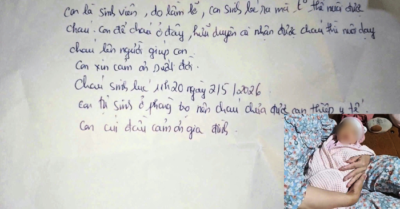 Con là sinh viên, do lầm lỡ, con sinh bé ra mà k thể nuôi được
cháu. Con để cháu ở đây, hữu duyên cô nhân được cháu thì nuôi dạy
cháu lên người giúp con.
Con xin cảm ơn suốt đời.
Cháu sinh lúc 11h20 ngày 2/5/2026
Con tự sinh ở phòng trọ nên cháu chưa được can thiệp y tế.
Con cúi đầu cảm ơn gia đình.